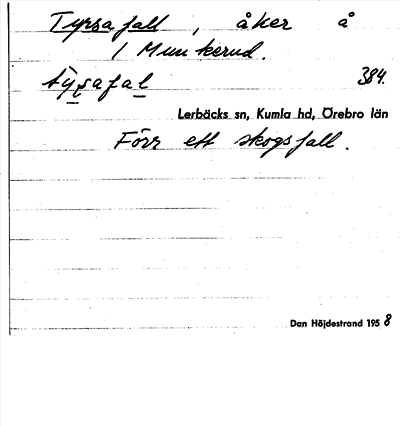 Tyrsafall, åker å
1 Munkerud.
384.
Lerbäcks sn, Kumla hd, Örebro län
Förr ett skogsfall.
Dan Höjdestrand 1958